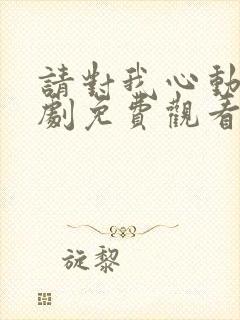 請對我心動
劇免費觀看
旋黎